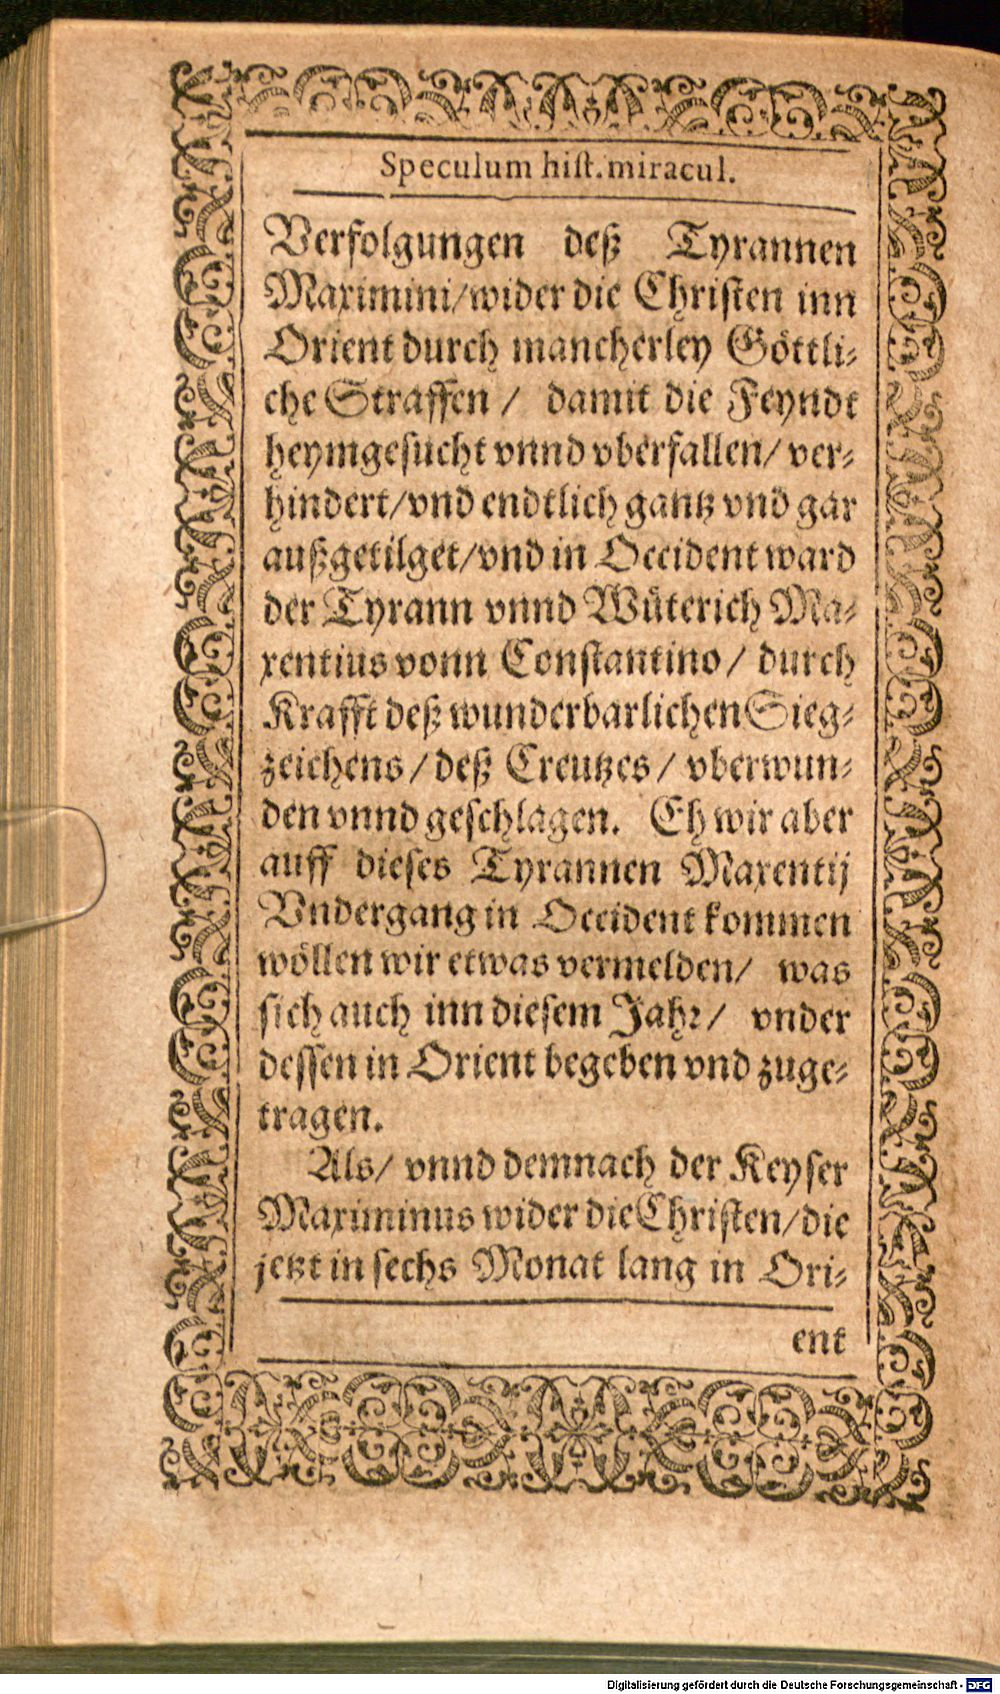 Speculum hist. miracul.
Verfolgungen deß Tyrannen
Maximini/wider die Christen inn
Orient durch mancherley Göttli-
che Straffen / damit die Feyndt
heymgesucht vnnd vberfallen/ ver-
hindert/vnd endtlich gantz vnd gar
außgetilget/vnd in Occident ward
der Tyrann vnnd Wüterich Ma-
xentius vonn Constantino / durch
Krafft deß wunderbarlichen Sieg-
zeichens / deß Creutzes / vberwun-
den vnnd geschlagen. Eh wir aber
auff dieses Tyrannen Maxentij
Vndergang in Occident kommen
wöllen wir etwas vermelden/ was
sich auch inn diesem Jahr / vnder
dessen in Orient begeben vnd zuge-
tragen.
Als/ vnnd demnach der Keyser
Maximinus wider die Christen/die
jetzt in sechs Monat lang in Ori-
ent
Digitalisierung gefördert durch die Deutsche Forschungsgemeinschaft - DFG